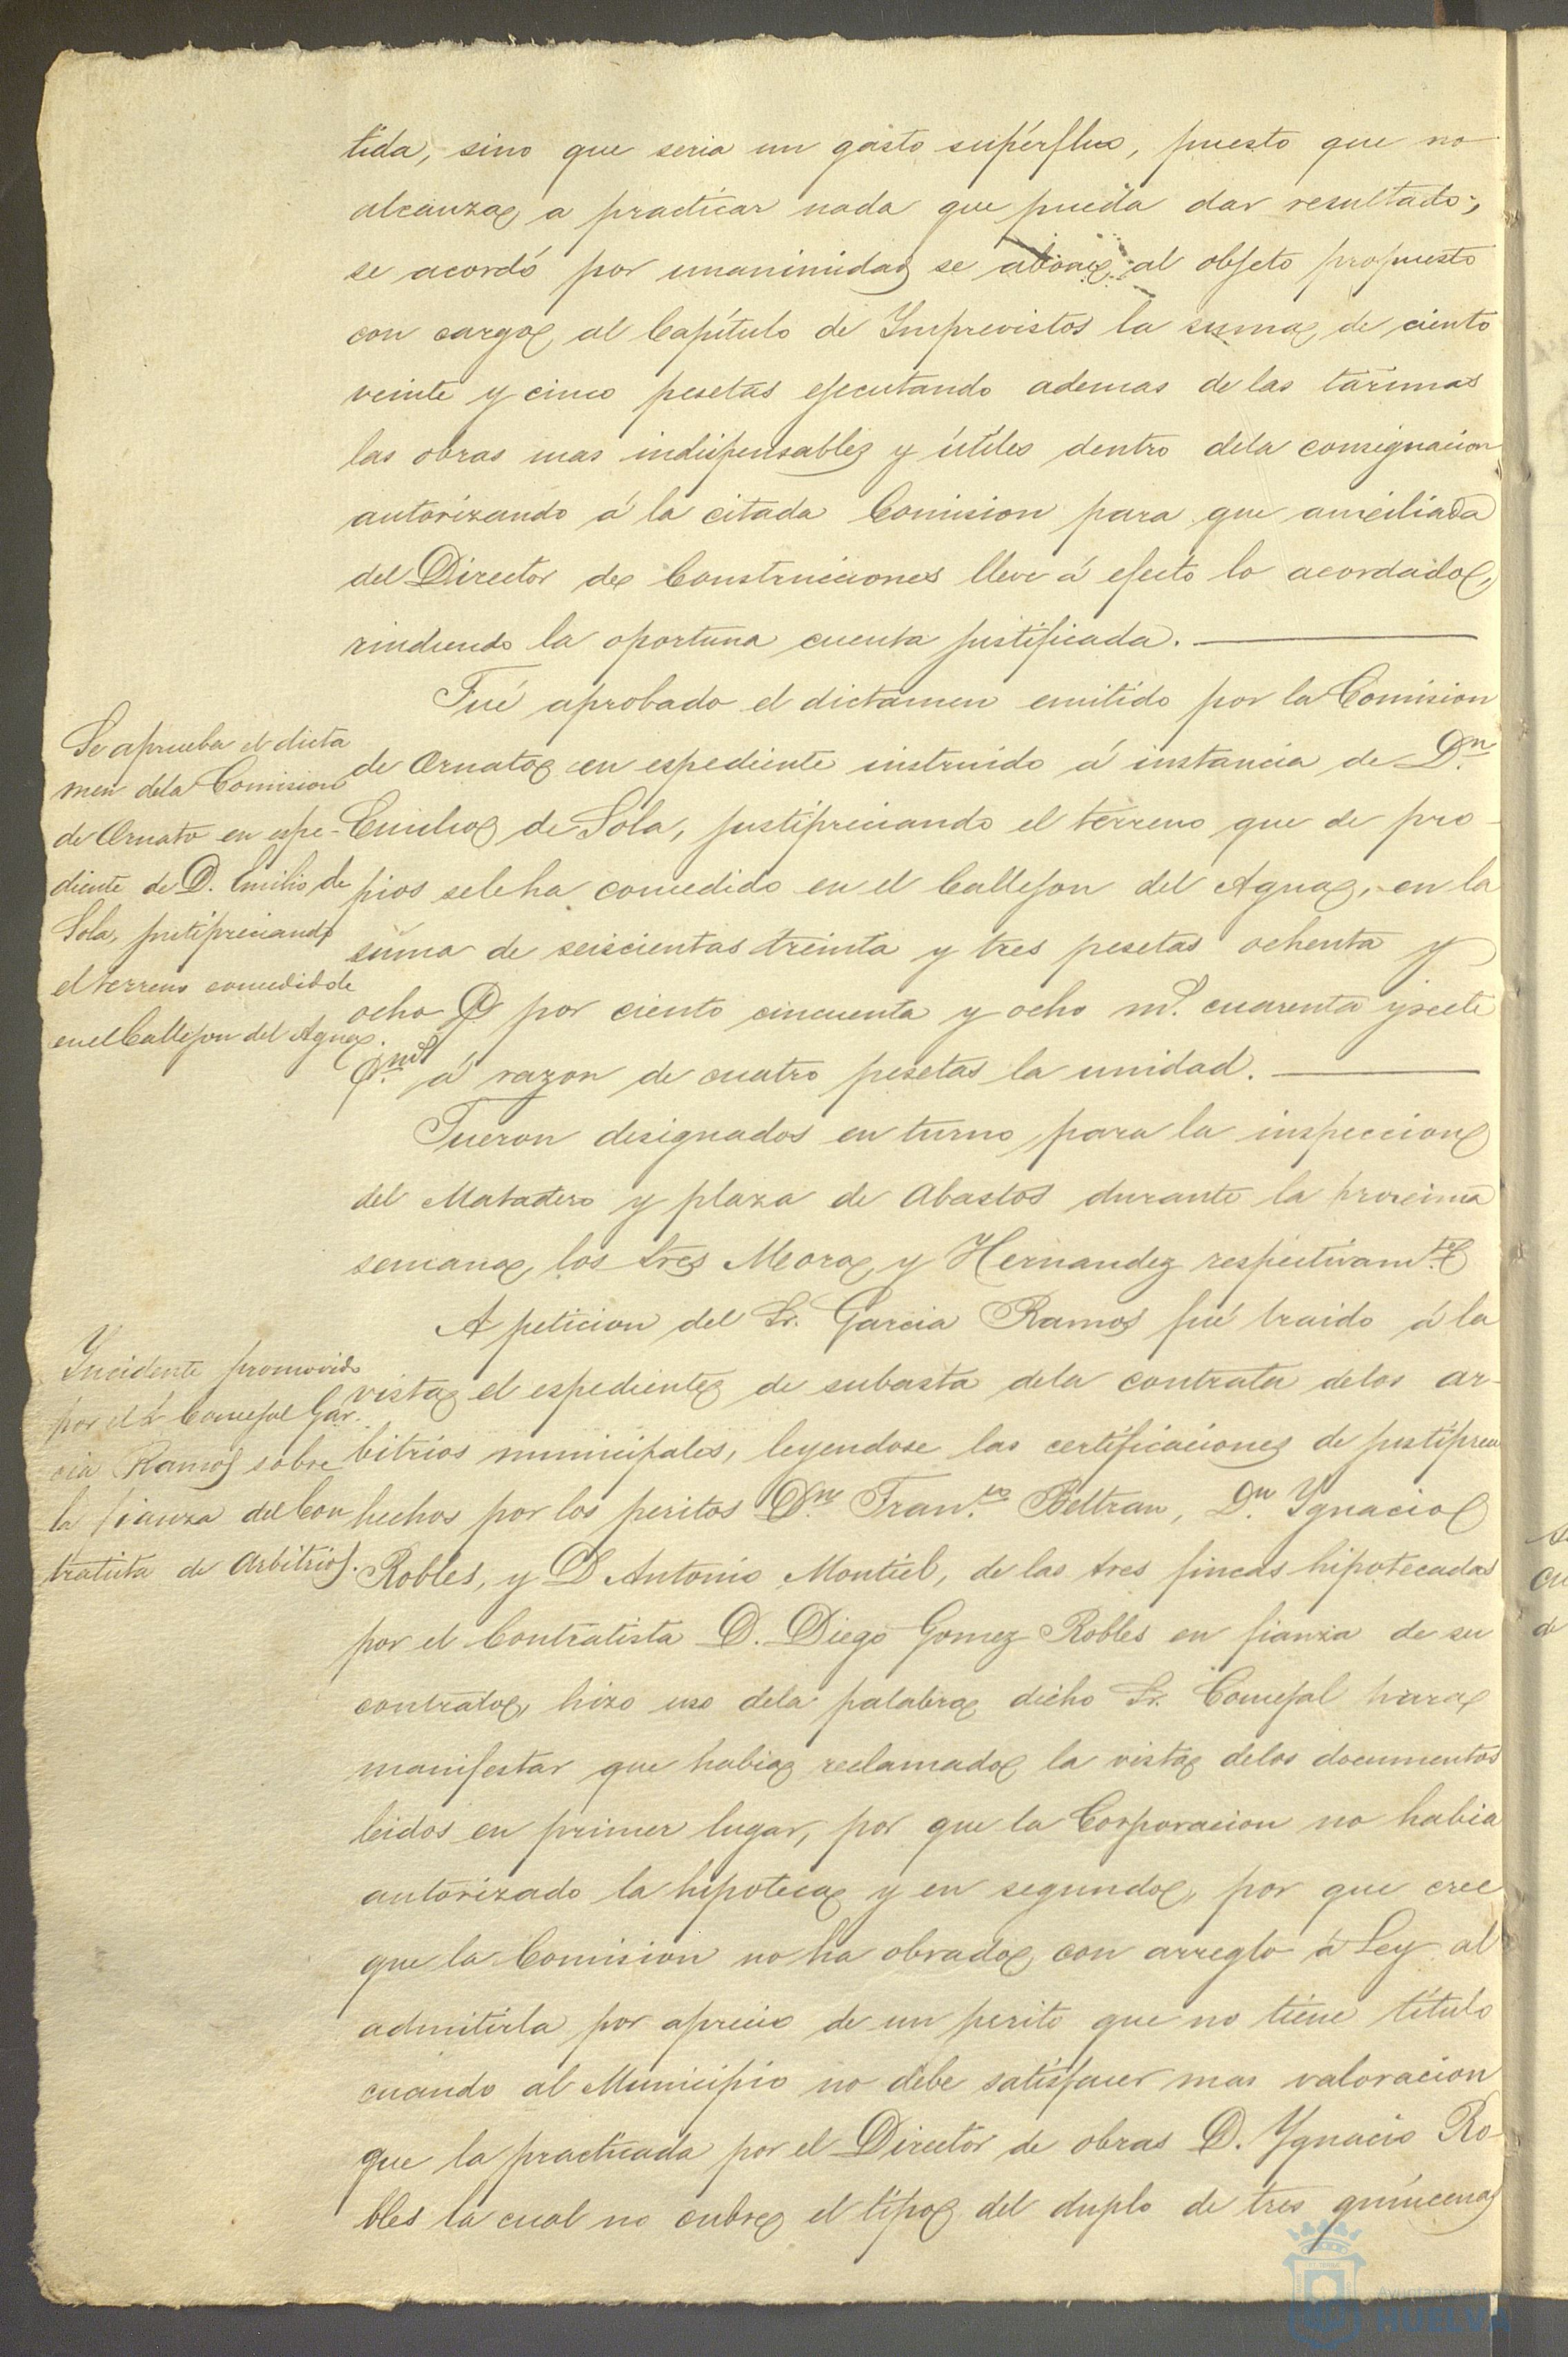 tida, sino que seria un gasto supérfluo, puesto que no
alcanza a practicar nada que pueda dar resultado;
se acordó por unanimidad se abone al objeto propuesto
con cargo al Capítulo de Ymprevistos la suma de ciento
veinte y cinco pesetas ejecutando ademas de las tarimas
las obras mas indispensables y útiles dentro dela consignacion
autorizando á la citada Comision para que auxiliada
del Director de Construcciones lleve á efecto lo acordado,
rindiendo la oportuna cuenta justificada.
Fué aprobado el dictamen emitido por la Comision
de Ornato en espediente instruido á instancia de Dn.
Emilio de Sola, justipreciando el terreno que de pro-
pios sele ha concedido en el Callejon del Agua, en la
suma de seiscientas treinta y tres pesetas ochenta y
ocho por ciento cincuenta y ocho ms. cuarenta y siete
á razon de cuatro pesetas la unidad.
Se aprueba el dicta
men dela Comision
de Ornato en espe-
diente de D. Emilio de
Sola, justipreciando
el terreno concedidole
en el Callejon del Agua.
Fueron designados en turno para la inspeccion
del Matadero y plaza de Abastos durante la procsima
semana, los Sres Mora y Hernandez respectivamte
A peticion del Sr. Garcia Ramos fué traido á la
vista el espediente de subasta dela contrata delos ar-
bitrios municipales, leyendose las certificaciones de justiprecio
hechos por los peritos Dn. Franco. Beltran, Dn. Ygnacio
Robles, y D Antonio Montiel, de las tres fincas hipotecadas
por el Contratista D. Diego Gomez Robles en fianza de su
contrato, hizo uso dela palabra dicho Sr. Concejal para
manifestar que habia reclamado la vista delos documentos
leidos en primer lugar, por que la Corporacion no habia
autorizado la hipoteca y en segundo, por que cree
que la Comision no ha obrado con arreglo á Ley al
admitirla por aprecio de un perito que no tiene título
cuando al Municipio no debe satisfacer mas valoracion
que la practicada por el Director de obras D. Ygnacio Ro-
bles la cual no cubre el tipo del duplo de tres quincenas
Yncidente promovido
por el Sr Concejal Gar-
cia Ramos sobre
la fianza del Con
tratista de Arbitrios.
Ayuntamiento
HUELVA